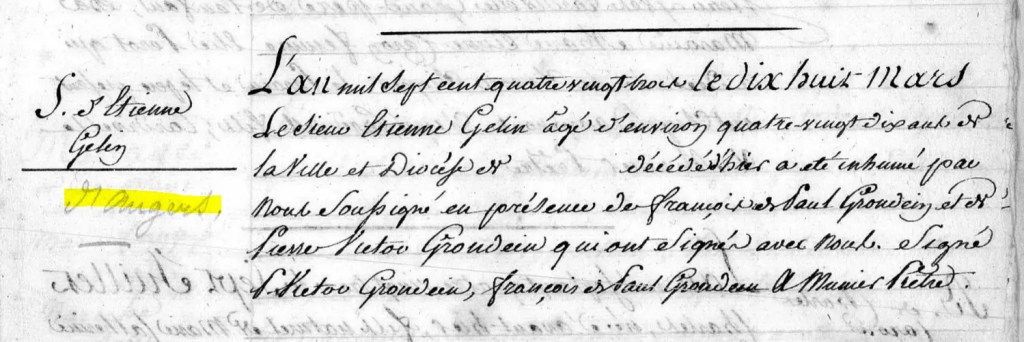 S. d'Etienne
Gelin
d'angers.
L'an mil sept cent quatre vingt trois le dix huit mars
Le Sieur Etienne Gelin âgé d'environ quatre-vingt dix ans de
la Ville et Diocèse de décédé hier a été inhumé par
nous soussigné en présence de françois de Paul Grondein et de
Pierre Victor Grondein qui ont signés avec nous. Signé
P. Victor Grondein, françois de Paul Grondein A Munier Prêtre.